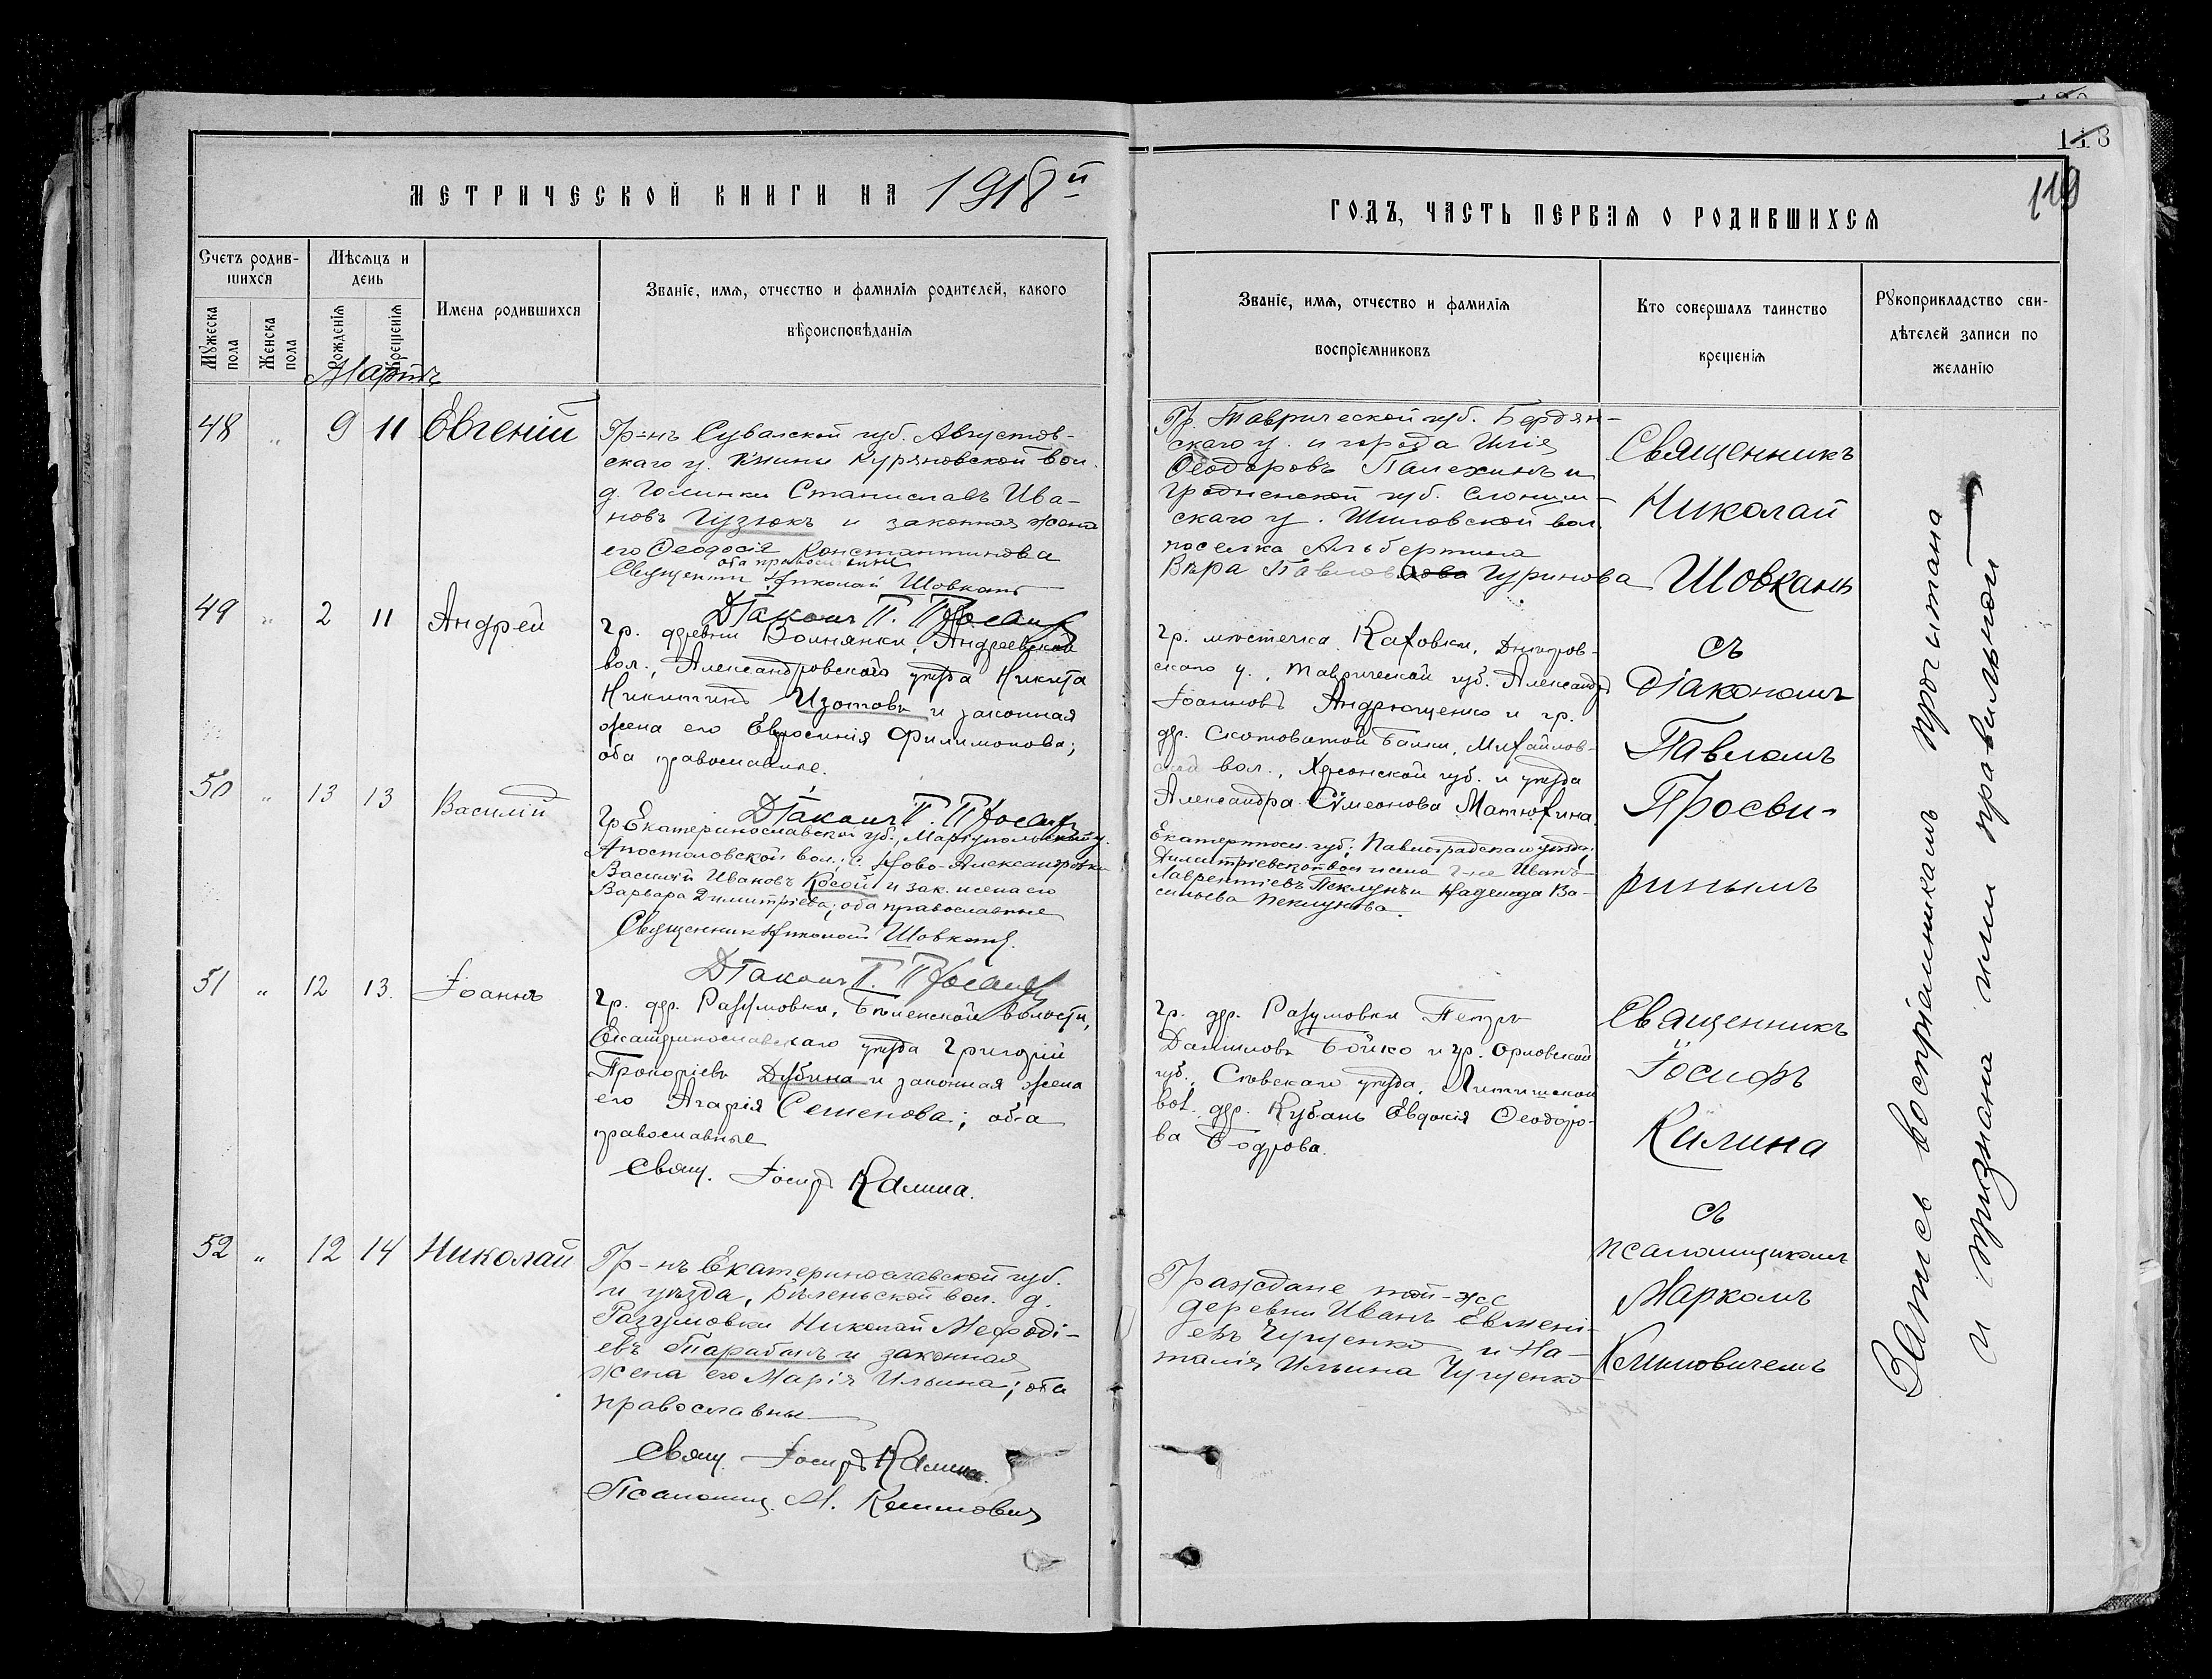 118
119
МЕТРИЧЕСКОЙ КНИГИ НА 1918й
ГОДЪ, ЧАСТЬ ПЕРВАЯ О РОДИВШИХСЯ
Счетъ родив-
шихся
Мѣсяцъ и
день
Имена родившихся
Званіе, имя, отчество и фамилія родителей, какого
вѣроисповѣданія
Мужеска
пола
Женска
пола
Рожденія
Крещенія
Званіе, имя, отчество и фамилія
воспріемниковъ
Кто совершалъ таинство
крещенія
Рукоприкладство сви-
дѣтелей записи по
желанію
Мартъ
48 „ 9 11 Евгеній
Гр-нъ Сувалской губ. Августов-
скаго у. Куряновской вол.
д. Голинки Станиславъ Ива-
новъ Гузюкъ и законная жена
его Ѳеодосія Константинова
оба православные
Священникъ Николай Шовкань
Діаконъ П.
Гр. Таврической губ. Бердян-
скаго у. и города Илія
Ѳеодоровъ Палехинъ и
Гродненской губ. Слоним-
скаго у. Шиловской вол.
поселка Альбертина
Вѣра Павлова Гуринова
Священникъ
Николай
Шовкань
49 „ 2 11 Андрей
Гр. деревни Волнянки, Андреевской
вол., Александровскаго уѣзда Никита
Никитинъ Изотовъ и законная
жена его Евфросинія Филимонова;
оба православные.
Діаконъ П.
Гр. мѣстечка Каховки, Днѣпров-
скаго у., Таврической губ. Александръ
Іоанновъ Андрющенко и гр.
дер. Скотоватой Балки, Михайлов-
ской вол., Херсонской губ. и уѣзда
Александра Сѵмеонова Матюхина.
съ
Діакономъ
Павломъ
Просви-
ринымъ
50 „ 13 13 Василій
Гр Екатеринославской губ., Маріупольскаго у.
Апостоловской вол., с. Ново-Александровки
Василій Ивановъ Косой и зак. жена его
Варвара Димитріева; оба православные
Священникъ Николай Шовкань.
Діаконъ П.
Екатериносл. губ; Павлоградскаго уѣзда;
Димитріевской вол и села Иванъ
Лаврентіевъ Пеклунъ и Надежда Ва-
сильева Пеклунова.
51 „ 12 13. Іоаннъ
Гр. дер. Разумовки, Бѣленской волости,
Екатеринославскаго уѣзда Григорій
Прокофіевъ Дубина и законная жена
его Агафія Семенова; оба
православные
Свящ. Іосифъ Калина.
Гр. дер. Разумовки Петръ
Даниловъ Бойко и гр. Орловской
губ., Сѣвскаго уѣзда, Литижской
вол. дер. Кубань Евдокія Ѳеодоро-
ва Бодрова.
Священникъ
Іосифъ
Калина
съ
псаломщикомъ
Маркомъ
Климовичемъ
52 „ 12 14 Николай
Гр-нъ Екатеринославской губ.
и уѣзда, Бѣленьской вол. д.
Разумовки Николай Мефоді-
евъ Тарабанъ и законная
жена его Марія Ильина; оба
православны
Свящ. Іосифъ Калина.
Псаломщ. М. Климовичъ
Граждане той-же
деревни Иванъ Евмені-
евъ Чугуенко и На-
талія Ильина Чугуенко
Запись воспріемникамъ прочитана
и признана ими правильной